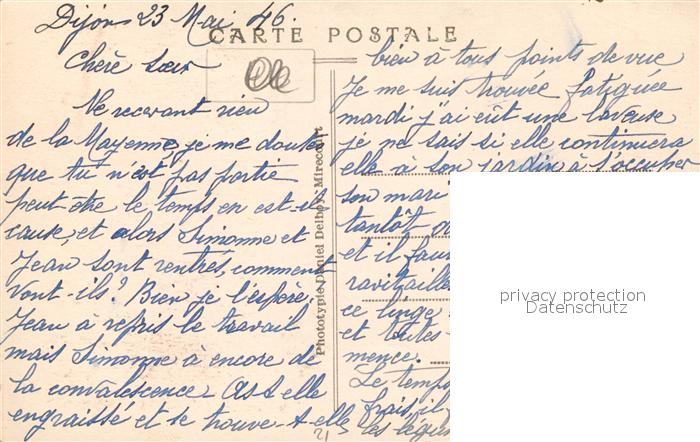 Dijon 23 Mai 46.
CARTE POSTALE
Chère Sœur
Ne recevant rien
de la Mayenne, je me doute
que tu n'est pas partie
peut-être le temps en est-il
cause, et alors Simonne et
Jean sont rentrés, comment
vont-ils? Bien je l'espère,
Jean à repris le travail
mais Simonne à encore de
la convalescence - As t elle
engraissé et se trouve-t-elle
Phototypie Daniel Delboy - Mirecourt
bien à tous points de vue
Je me suis trouvée fatiguée
mardi j'ai eût une laveuse
je ne sais si elle continuera
elle à son jardin à l'occuper
son mari
tantôt
et il faut
ravitaille
ce linge
et toutes
mence.
Le temps
frais, il
les légu
privacy protection
Datenschutz